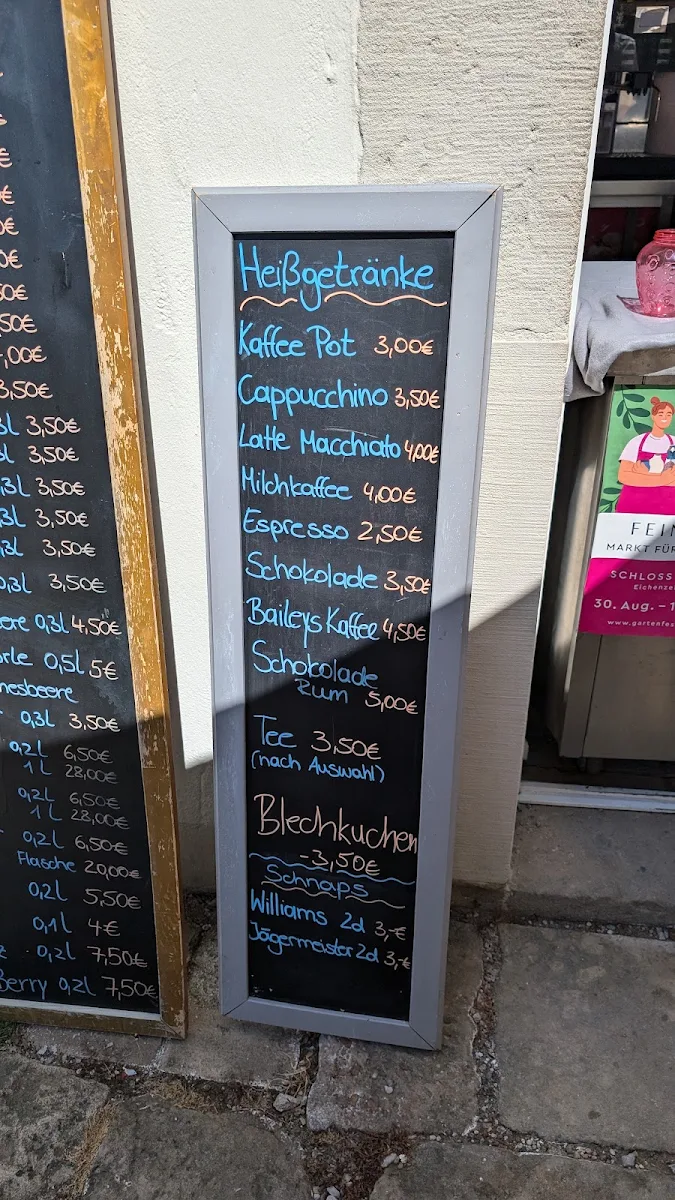 €
€
€
0€
50€
,50€
,00€
3,50€
3l 3,50€
3l 3,50€
,3l 3,50€
,3l 3,50€
,3l 3,50€
0,3l 3,50€
eere 0,3l 4,50€
rle 0,5l 5€
nesbeere
0,3l 3,50€
0,2l 6,50€
1l 28,00€
0,2l 6,50€
1l 28,00€
0,2l 6,50€
Flasche 20,00€
0,2l 5,50€
0,1l 4€
0,2l 7,50€
Berry 0,2l 7,50€
Heißgetränke
Kaffee Pot 3,00€
Cappucchino 3,50€
Latte Macchiato 4,00€
Milchkaffee 4,00€
Espresso 2,50€
Schokolade 3,50€
Baileys Kaffee 4,50€
Schokolade
Rum 5,00€
Tee 3,50€
(nach Auswahl)
Blechkuchen
-3,50€
Schnaps
Williams 2cl 3,-€
Jägermeister 2cl 3,-€
FEIN
MARKT FÜR
SCHLOSS
Eichenzel
30. Aug. – 1
www.gartenfes